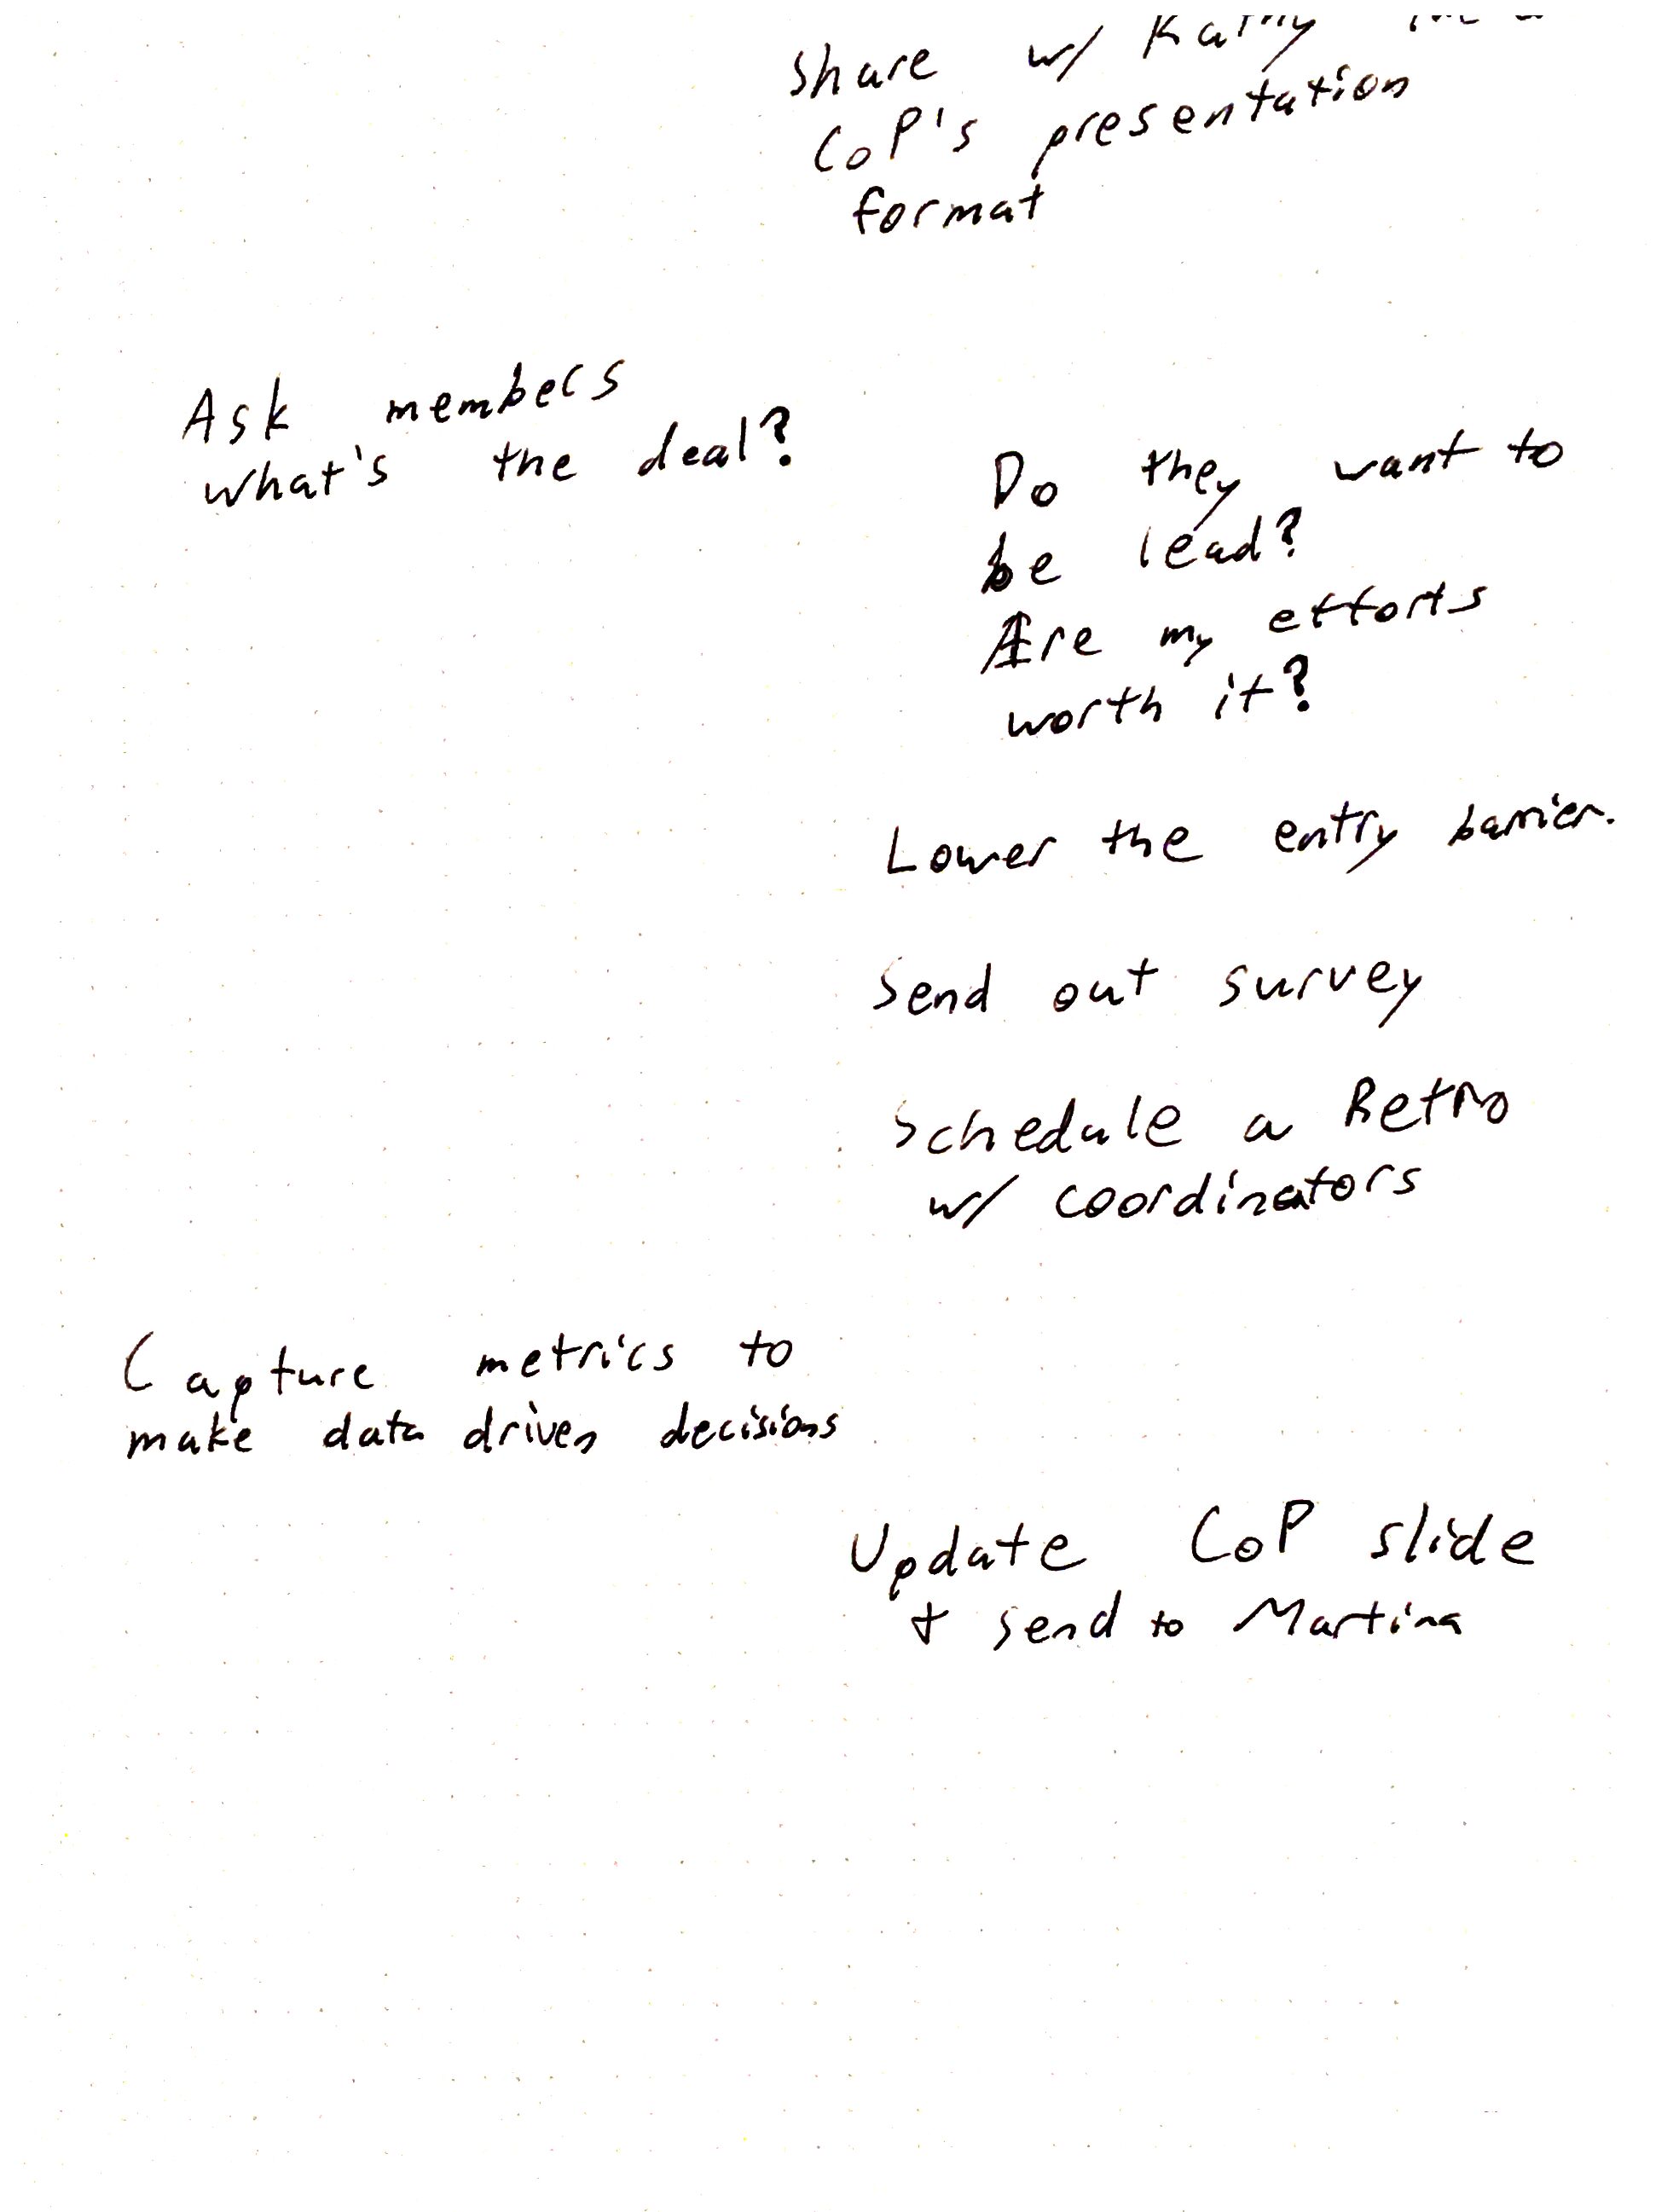 Share w/ Kathy
CoP's presentation
format
Ask members
what's the deal?
Do they want to
be lead?
Are my efforts
worth it?
Lower the entry barrier.
Send out survey
Schedule a Retro
w/ coordinators
Capture metrics to
make data driven decisions
Update CoP slide
+ send to Martina